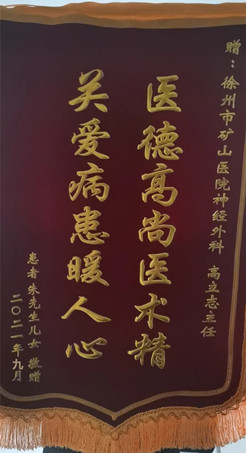 赠：徐州市矿山医院神经外科 高立志主任
医德高尚医术精
关爱病患暖人心
患者朱先生儿女 敬赠
二〇二一年九月